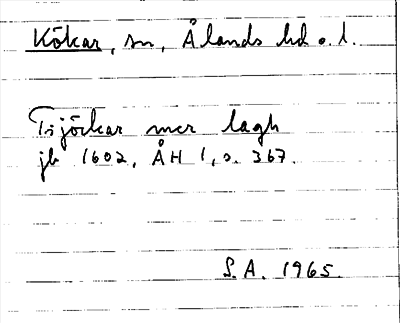 Kökar, sn, Ålands hd o. l.
Tjörkar mer lagh
jb 1602, ÅH 1, s. 367.
S.A. 1965.